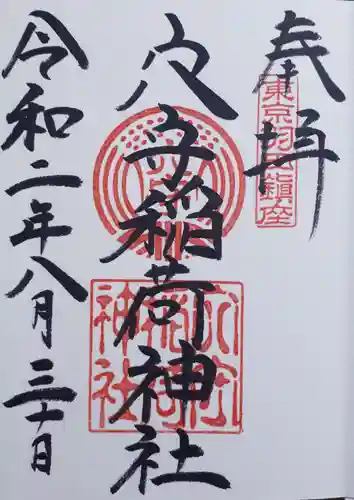 奉拝
東京羽田鎮座
穴守稲荷神社
令和二年八月三十日